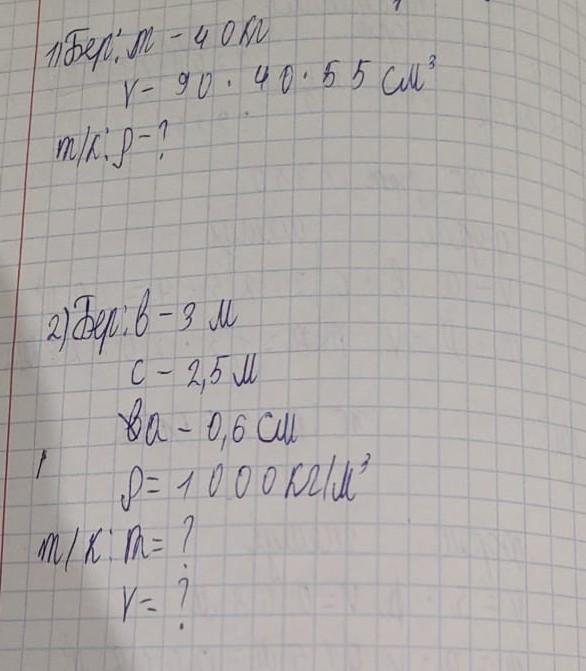 1) Бер: m - 40кг
V - 90 · 40 · 55 см³
m/к: ρ - ?
2) Бер: b - 3 м
c - 2,5 м
a - 0,6 см
ρ = 1000 кг/м³
m/к: m = ?
V = ?